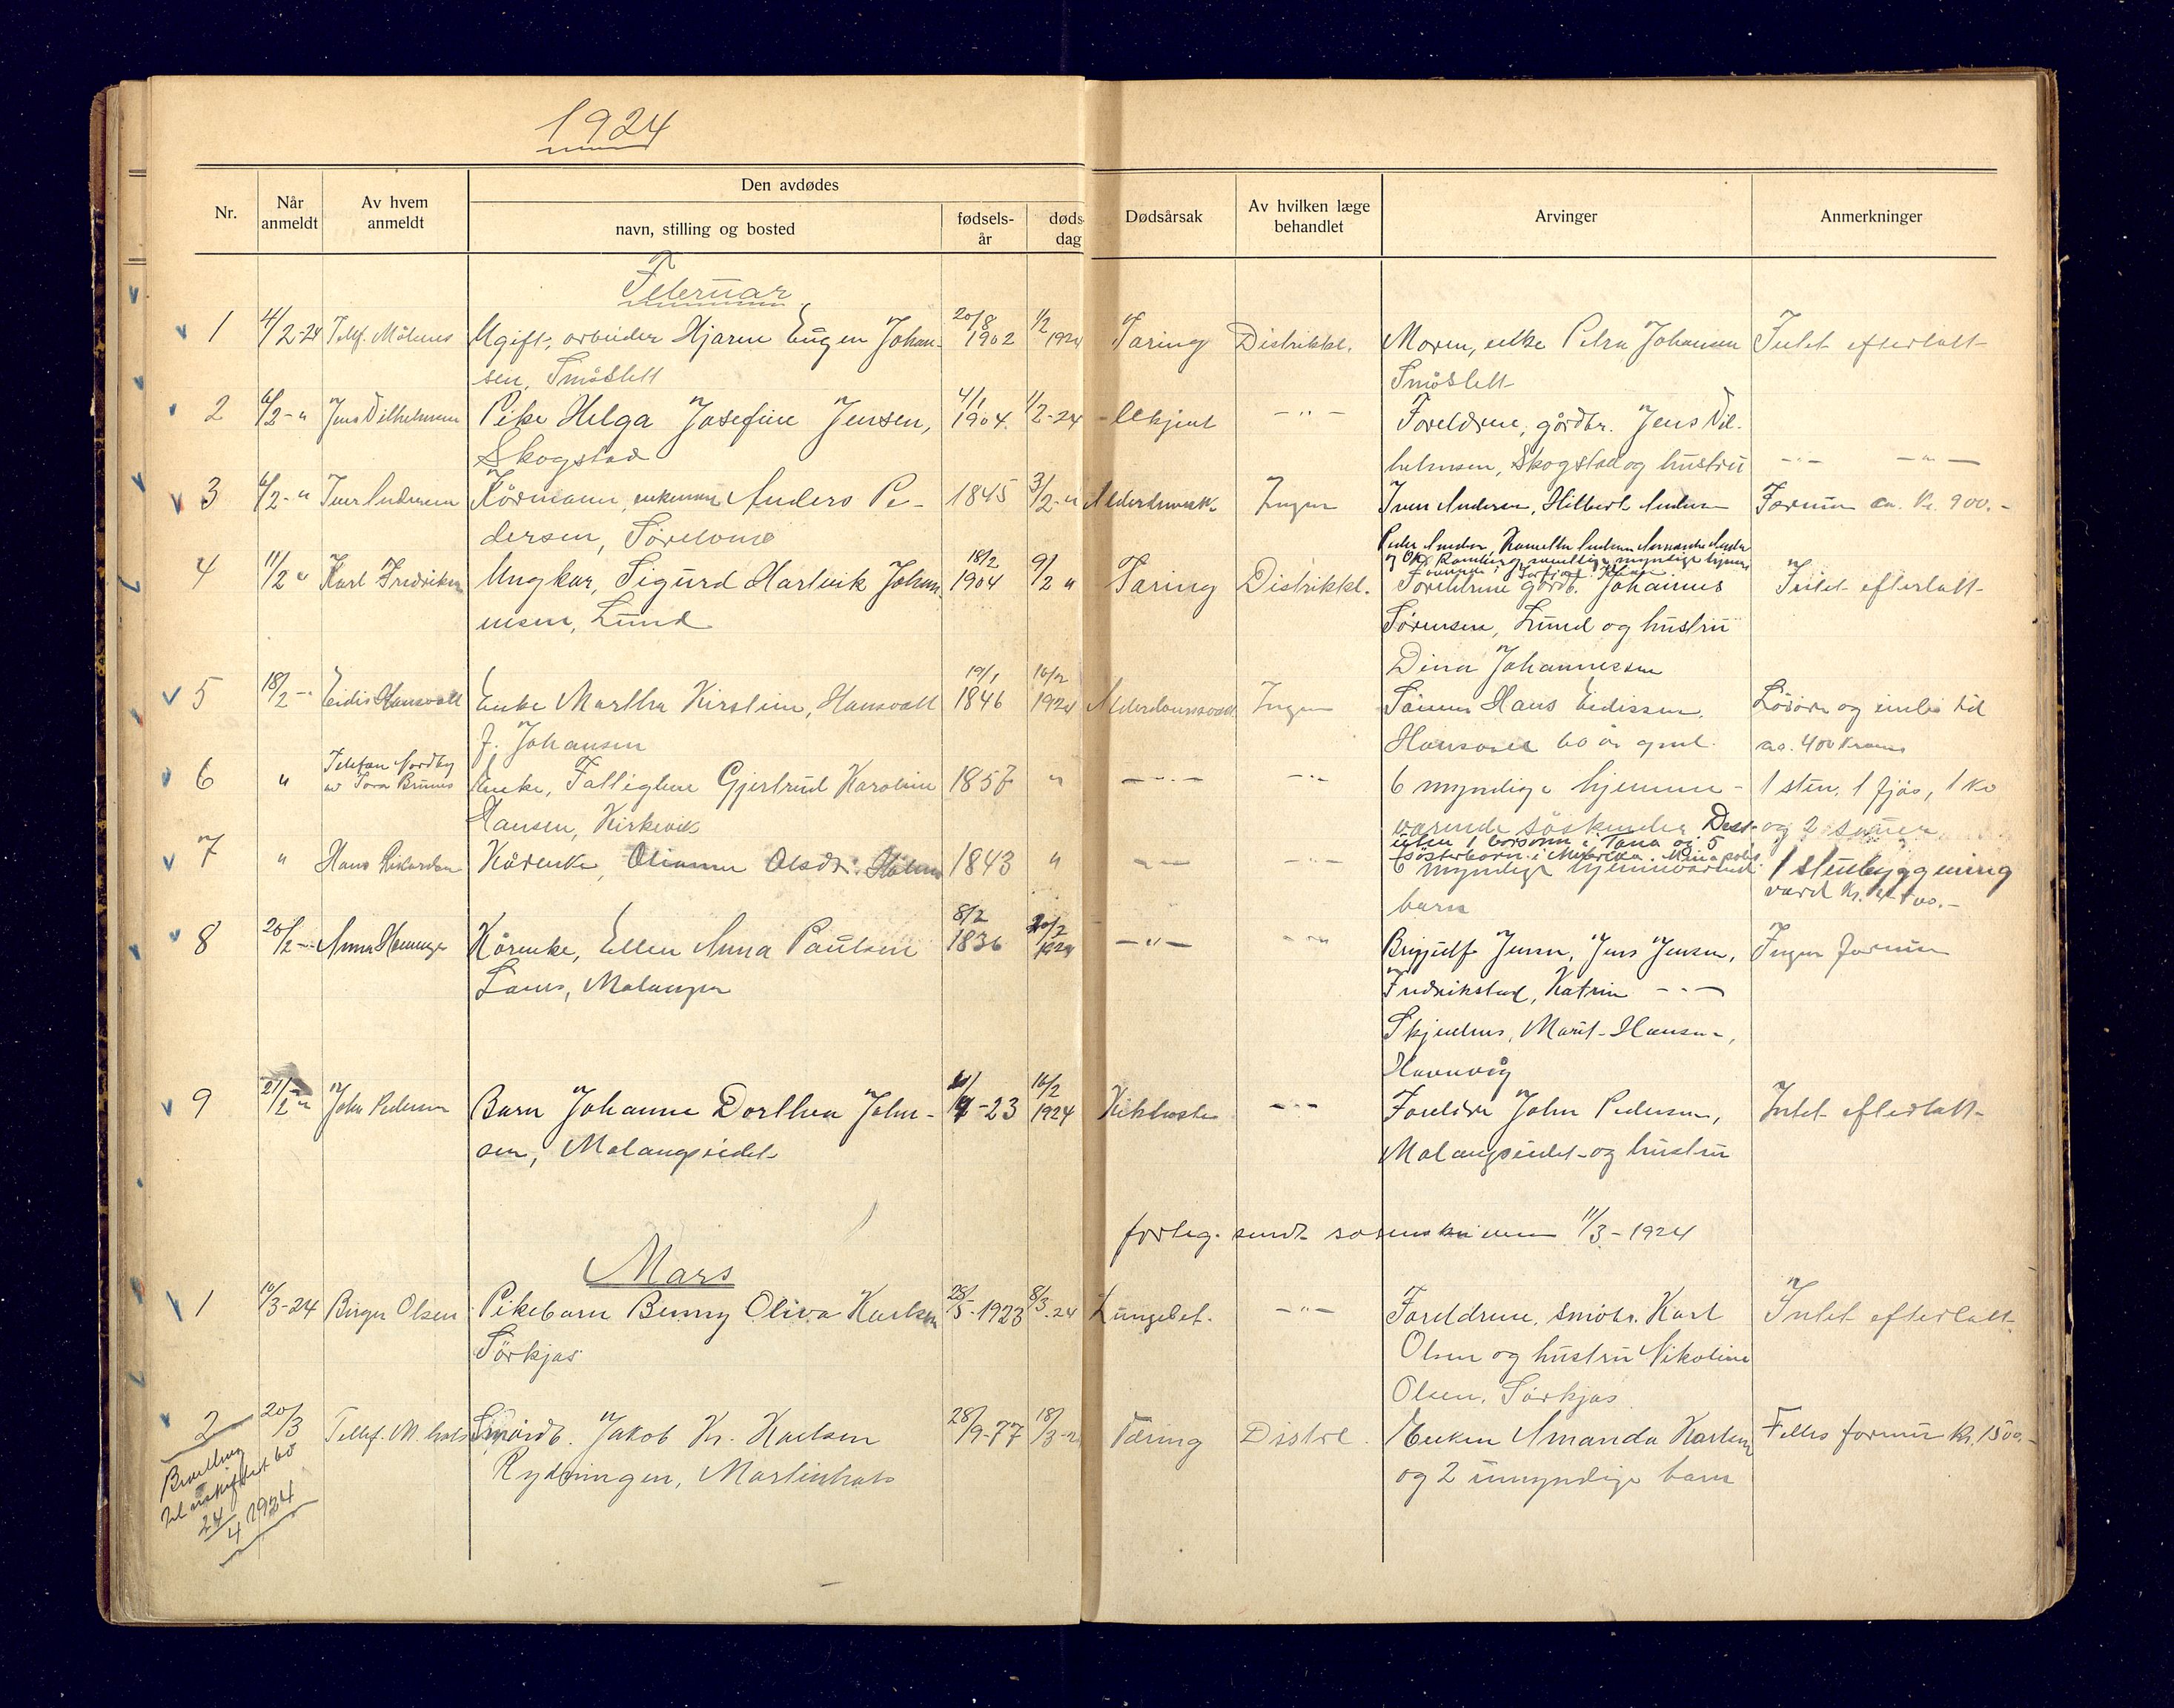 1924
Nr.
Når anmeldt
Av hvem anmeldt
Den avdødes
navn, stilling og bosted
fødsels-år
døds dag
Dødsårsak
Av hvilken læge behandlet
Arvinger
Anmerkninger
Februar
1 4/2-24 Telf. Målsnes Ugift, arbeider Hjarm Eugen Johan- 20/8 1902 1/2 1924 Tæring Distriktl. Moren, enke Petra Johansen Intet efterlatt
sen, Småslett Småslett
2 6/2-" Jens Vilhelmsen Pike Helga Josefine Jensen, 4/1 1904. 1/2-24 Ukjent -"- Foreldrene, gårdbr. Jens Vil-
Skogstad helmsen, Skogstad og hustru -"- -"-
3 6/2-" Iver Andersen Kårmann, enkemann Anders Pe- 1845 3/2-" Ingen Iver Andersen, Hilbert Andersen Formue ca. Kr. 900.-
dersen, Peder Andersen,
4 11/2 " Karl Fredriksen Ungkar, Sigurd Hartvik Johan- 18/2 1904 9/2 " Tæring Distriktl. Foreldrene gårdb. Johannes Intet efterlatt
nesen, Lund Sørensen, Lund og hustru
Dina Johannessen
5 18/2-" Eidis Hansvoll Enke Martha Kirstine, Hansvoll 19/1 1846 16/2 1924 Ingen Sønnen Hans Eidissen, Løsøre og innbo til
f. Johansen 60 år gml. ca. 400 Kroner
6 " Telefon Nordby Enke, Fattiglem Gjertrud Karoline 1857 " -"- -"- 6 myndige hjemme- 1 sten, 1 fjøs, 1 ko
Hansen, Kirkevik værende søskende. Des- og 2 sauer
uten 1 brorsønn i Tana og 5
søsterbørn i Amerika.
7 " Hans Rikardsen Kårenke, Olianna Olsdr. 1843 " -"- -"- 6 myndige hjemmeværende 1 stuebyggning
barn værd Kr.
8 20/2-" Anna Kårenke, Ellen Anna Paulsen 8/2 1836 20/2 1924 -"- -"- Jensen, Jens Jensen, Ingen formue
Malangen Fredrikstad, Katrin -"-
Marit Hansen,
Havnvåg
9 21/2 " John Pedersen Barn Johanne Dorthea John- -23 16/2 1924 Kikhoste -"- Foreldre John Pedersen, Intet efterlatt
sen, Malangseidet Malangseidet og hustru
forteg. sendt sorenskriveren 11/3-1924
Mars
1 10/3-24 Birger Olsen Pikebarn Benny Oliva Karlsen 28/5-1923 8/3-24 Lungebet. -"- Foreldrene, småbr. Karl Intet efterlatt
Sørkjos Olsen og hustru Nikoline
Olsen, Sørkjos
2 20/3 Telef. M. hals Småbrdb. Jakob Kr. Karlsen 28/9-77 18/3-2 Tæring Distrl. Enken Amanda Karlsen Felles formue Kr. 1500.-
Rydningen, Martinhals og 2 umyndige barn
Bevilling
til uskiftet bo
24/4 1924